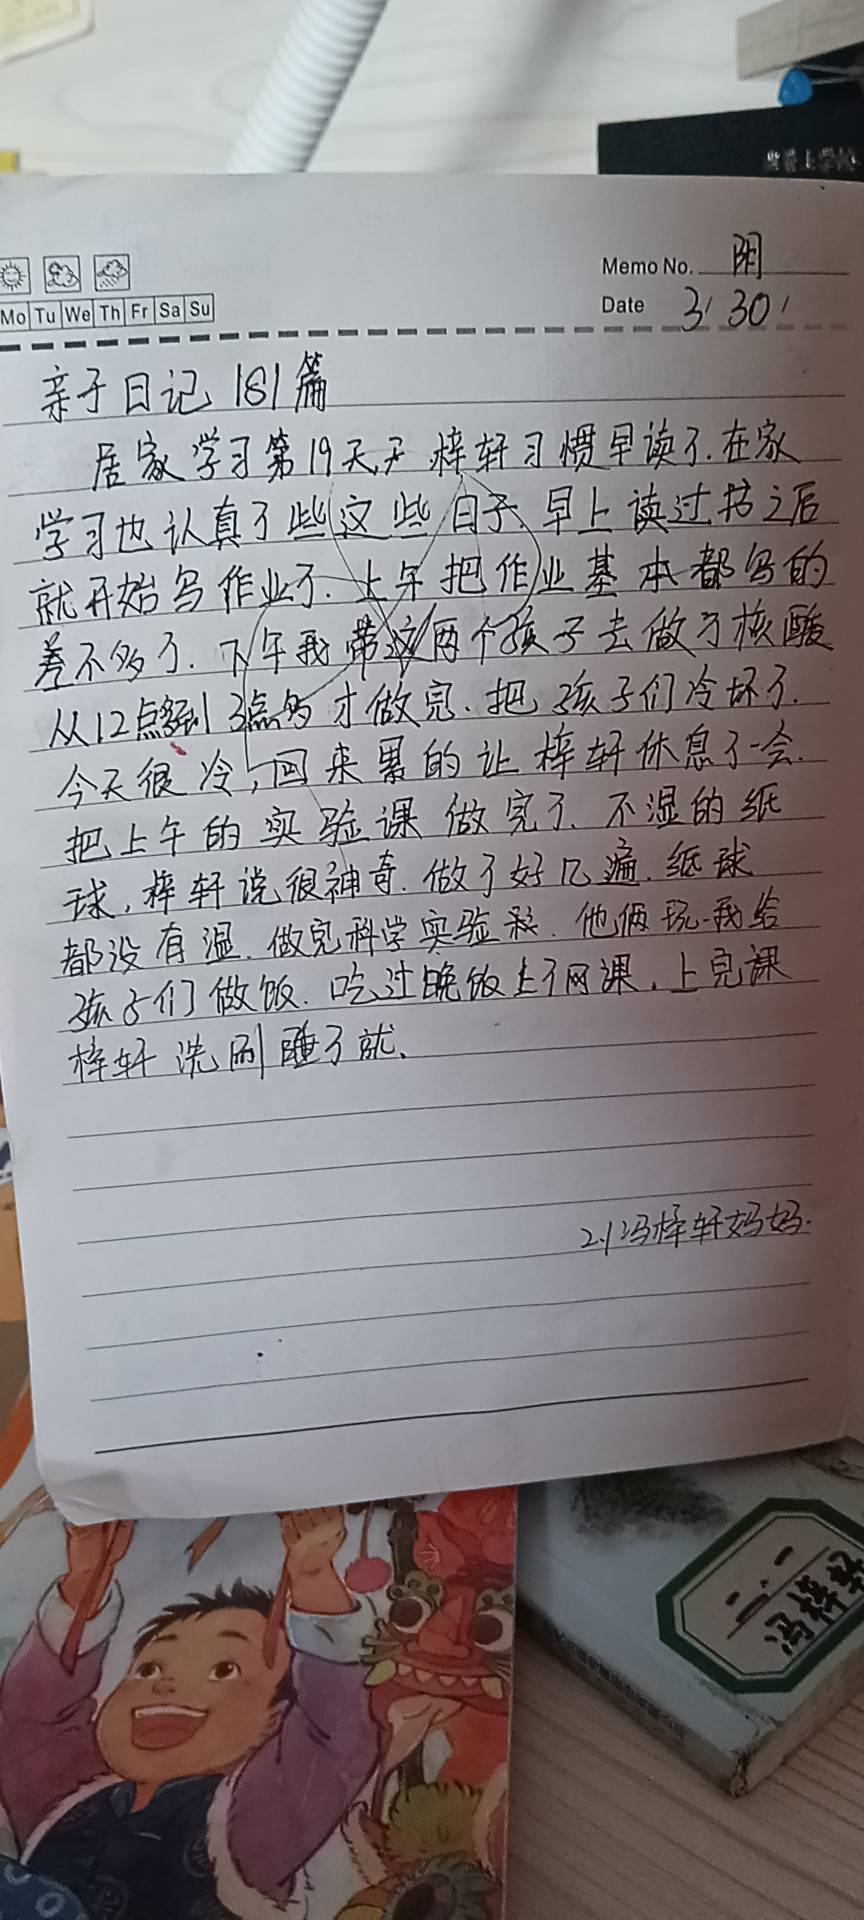 Memo No. 阴
Mo Tu We Th Fr Sa Su
Date 3/30/
亲子日记 181篇
居家学习第19天, 梓轩习惯早读了.在家
学习也认真了些这些日子.早上读过书之后
就开始写作业了.上午把作业基本都写的
差不多了.下午我带这两个孩子去做了核酸
从12点到3点多才做完.把孩子们冷坏了.
今天很冷,回来累的让梓轩休息了一会.
把上午的实验课做完了.不湿的纸
球,梓轩说很神奇.做了好几遍.纸球
都没有湿.做完科学实验.他俩玩.我给
孩子们做饭.吃过晚饭上了网课.上完课
梓轩洗刷睡了就.
2.1冯梓轩妈妈.
二.一
冯梓轩